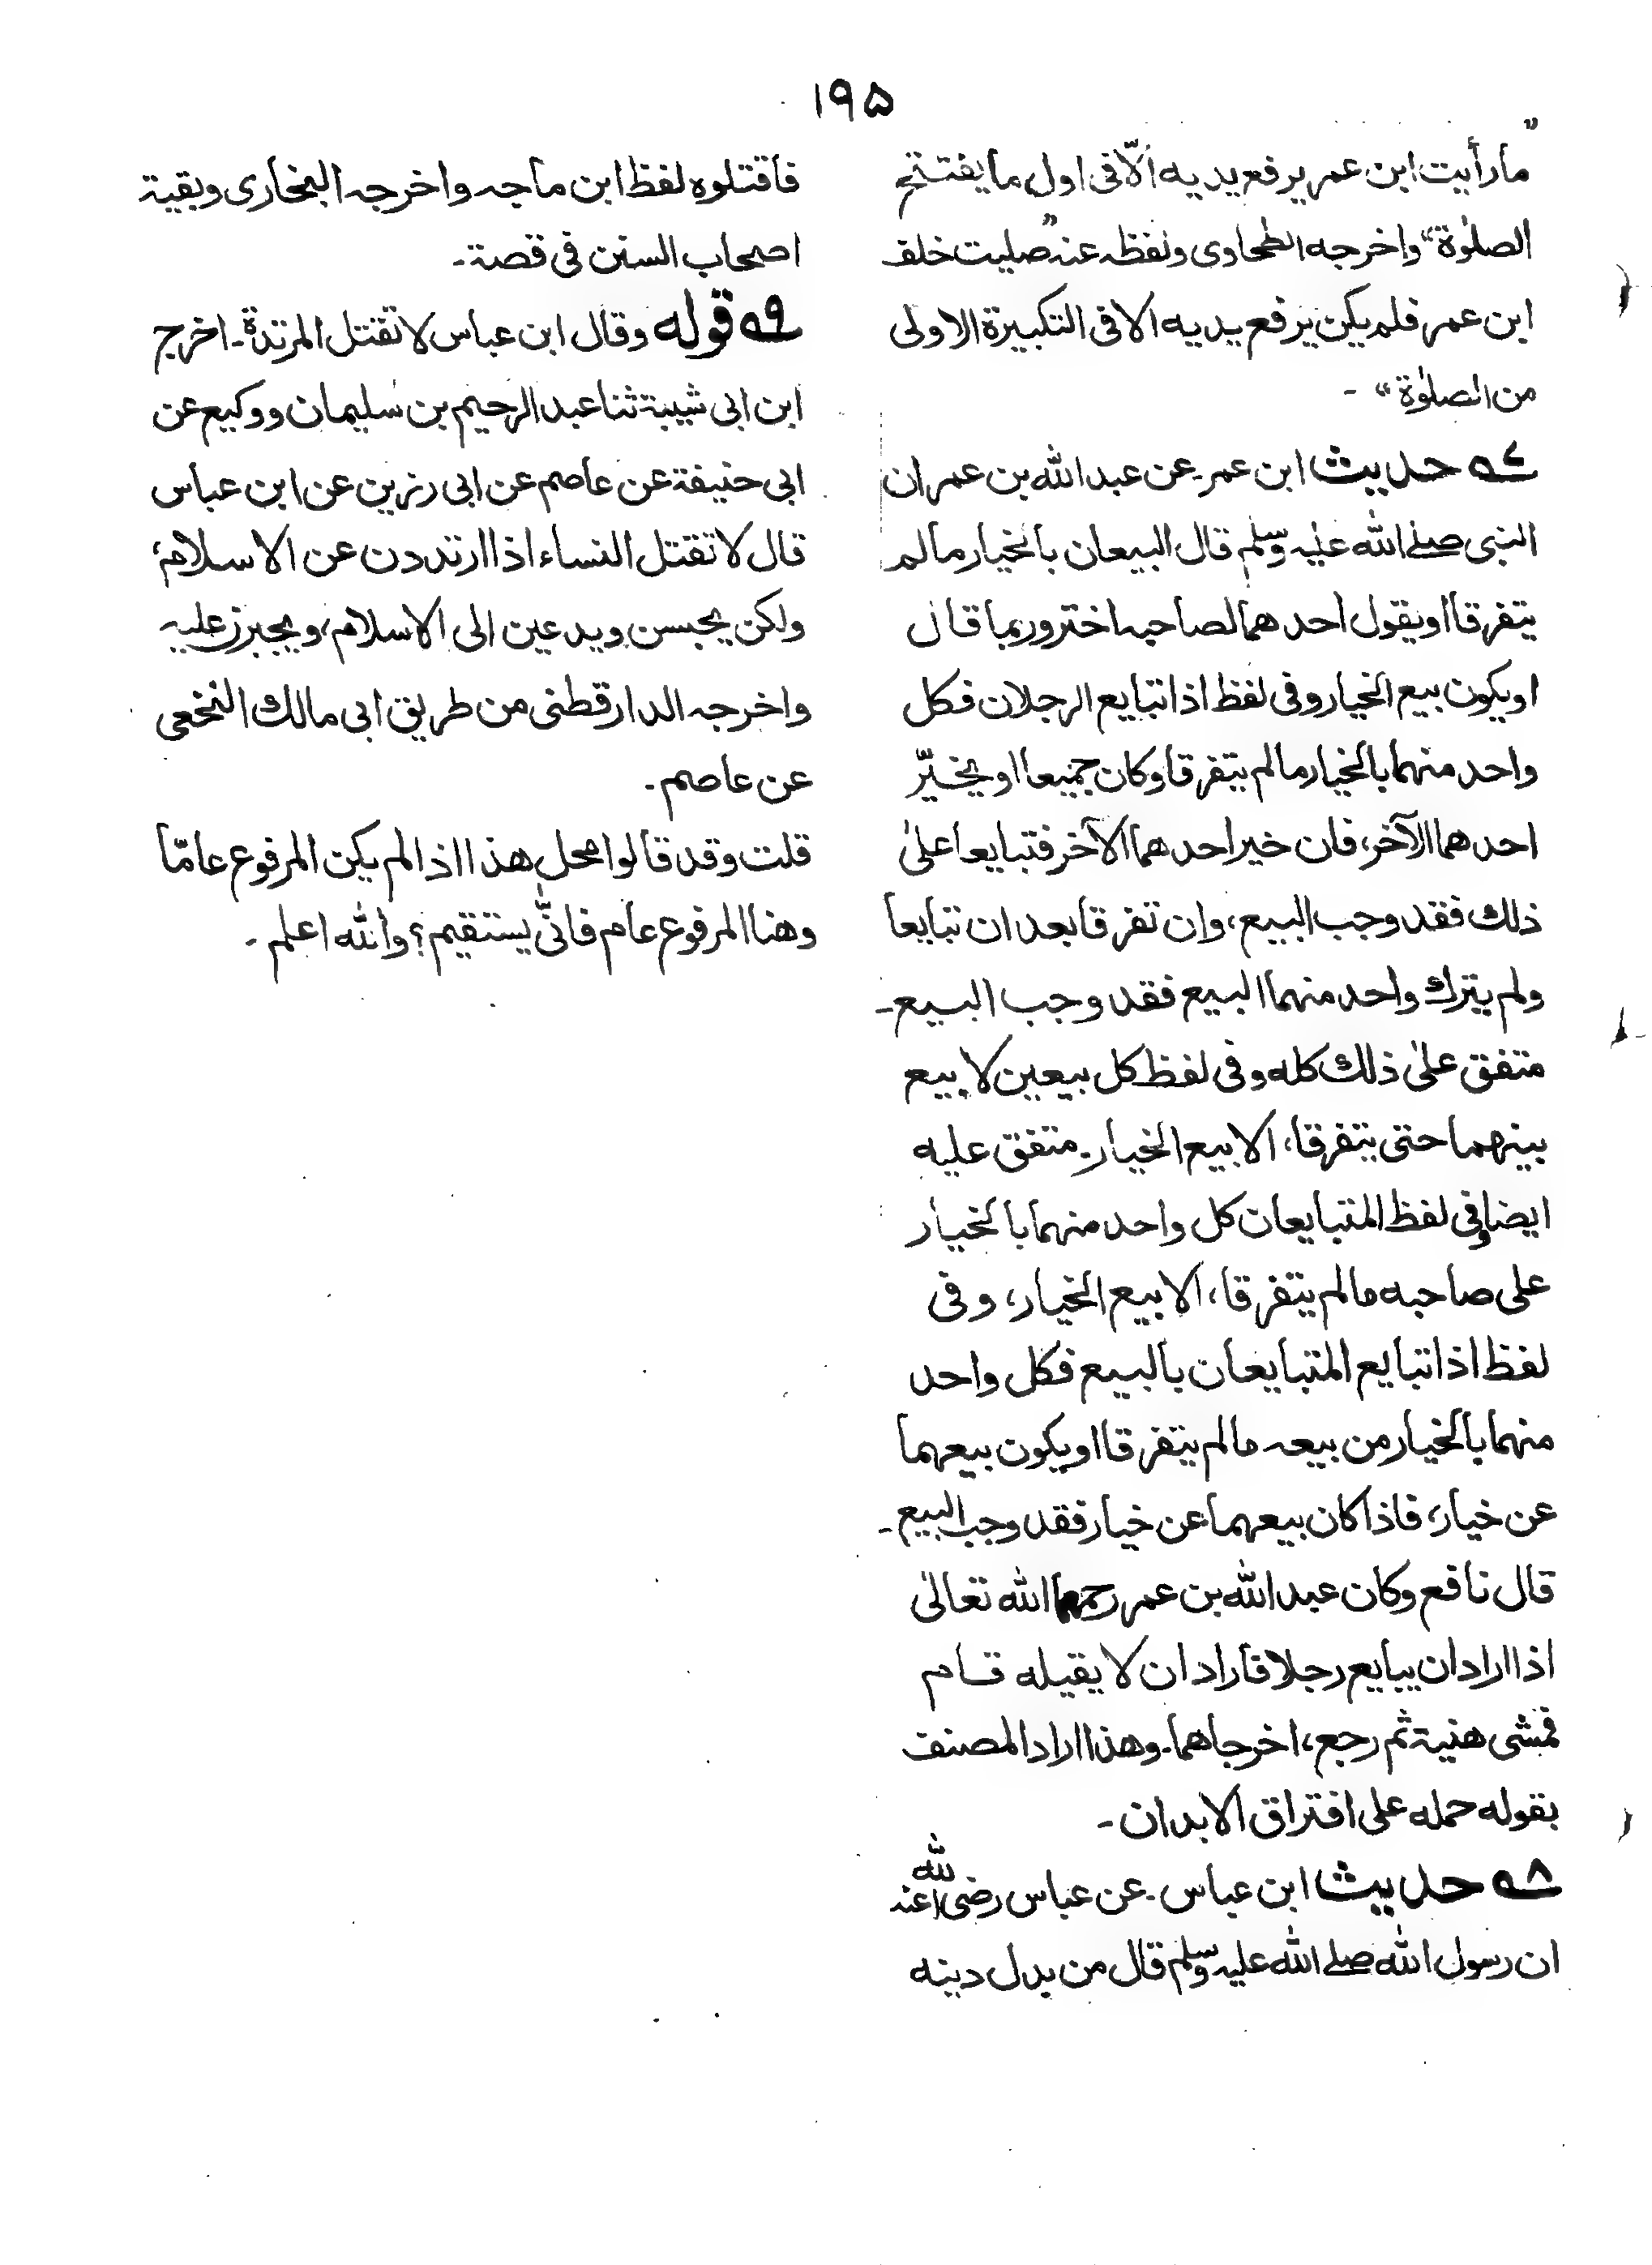 ۱۹۵
”مارأیت ابن عمر یرفع یدیه الّا فی اول ما یفتتح
الصلوٰة“ واخرجه الطحاوی ولفظه عنه ”صلیت خلف
ابن عمر فلم یکن یرفع یدیه الا فی التکبیرة الاولی
من الصلوٰة“ ۔
۷؎ حدیث ابن عمر۔ عن عبد الله بن عمر ان
النبی صلے الله علیہ وسلم قال البیعان بالخیار مالم
یتفرقا او یقول احدهما لصاحبه اختر وربما قال
او یکون بیع الخیار وفی لفظ اذا تبایع الرجلان فکل
واحد منهما بالخیار مالم یتفرقا وکان جمیعا او یخیّر
احدهما الآخر، فان خیر احدهما الآخر فتبایعا علیٰ
ذلك فقد وجب البیع، وان تفرقا بعد ان تبایعا
ولم یترك واحد منهما البیع فقد وجب البیع۔
متفق علیٰ ذلك کله وفی لفظ کل بیعین لا بیع
بینهما حتی یتفرقا، الا بیع الخیار۔ متفق علیه
ایضا وفی لفظ المتبایعان کل واحد منهما بالخیار
علی صاحبه مالم یتفرقا، الا بیع الخیار، وفی
لفظ اذا تبایع المتبایعان بالبیع فکل واحد
منهما بالخیار من بیعه مالم یتفرقا او یکون بیعهما
عن خیار، فاذا کان بیعهما عن خیار فقد وجب البیع۔
قال نافع وکان عبد الله بن عمر رحمهما الله تعالیٰ
اذا اراد ان یبایع رجلا فاراد ان لا یقیله قام
فمشی هنیة ثم رجع، اخرجاهما۔ وهذا اراد المصنف
بقوله حمله علی افتراق الابدان۔
۸؎ حدیث ابن عباس۔ عن عباس رضی الله عنه
ان رسول الله صلے الله علیہ وسلم قال من بدل دینه
فاقتلوه لفظ ابن ماجه واخرجه البخاری وبقیة
اصحاب السنن فی قصة۔
۹؎ قوله وقال ابن عباس لا تقتل المرتدة۔ اخرج
ابن ابی شیبة ثنا عبد الرحیم بن سلیمان ووکیع عن
ابی حنیفة عن عاصم عن ابی رزین عن ابن عباس
قال لا تقتل النساء اذا ارتددن عن الاسلام،
ولکن یحبسن ویدعین الی الاسلام، ویجبرن علیہ
واخرجه الدارقطنی من طریق ابی مالك النخعی
عن عاصم۔
قلت وقد قالوا محل هذا اذا لم یکن المرفوع عامّا
وهنا المرفوع عام فانّٰی یستقیم؟ والله اعلم۔